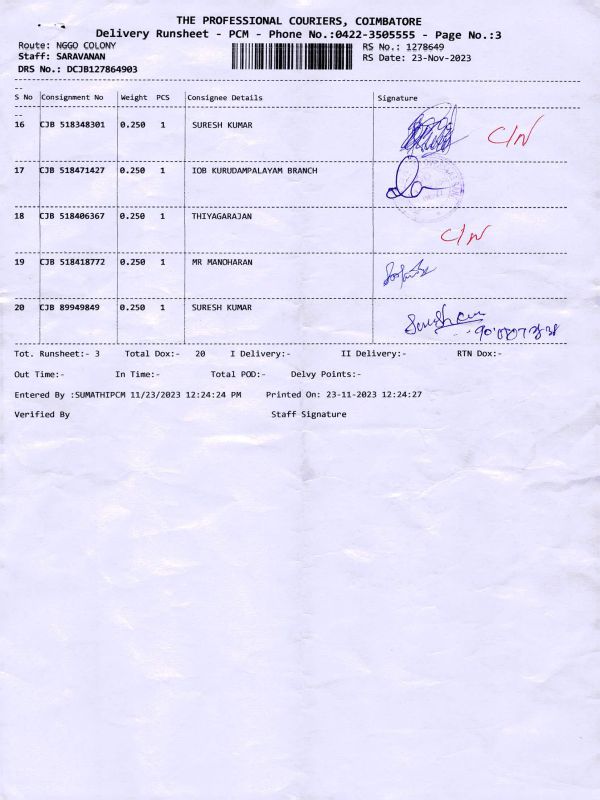 THE PROFESSIONAL COURIERS, COIMBATORE
Delivery Runsheet - PCM - Phone No.:0422-3505555 - Page No.:3
Route: NGGO COLONY RS No.: 1278649
Staff: SARAVANAN RS Date: 23-Nov-2023
DRS No.: DCJB127864903
S No Consignment No Weight PCS Consignee Details Signature
16 CJB 518348301 0.250 1 SURESH KUMAR C/N
17 CJB 518471427 0.250 1 IOB KURUDAMPALAYAM BRANCH
18 CJB 518406367 0.250 1 THIYAGARAJAN C/N
19 CJB 518418772 0.250 1 MR MANOHARAN
20 CJB 89949849 0.250 1 SURESH KUMAR
Tot. Runsheet:- 3 Total Dox:- 20 I Delivery:- II Delivery:- RTN Dox:-
Out Time:- In Time:- Total POD:- Delvy Points:-
Entered By :SUMATHIPCM 11/23/2023 12:24:24 PM Printed On: 23-11-2023 12:24:27
Verified By Staff Signature